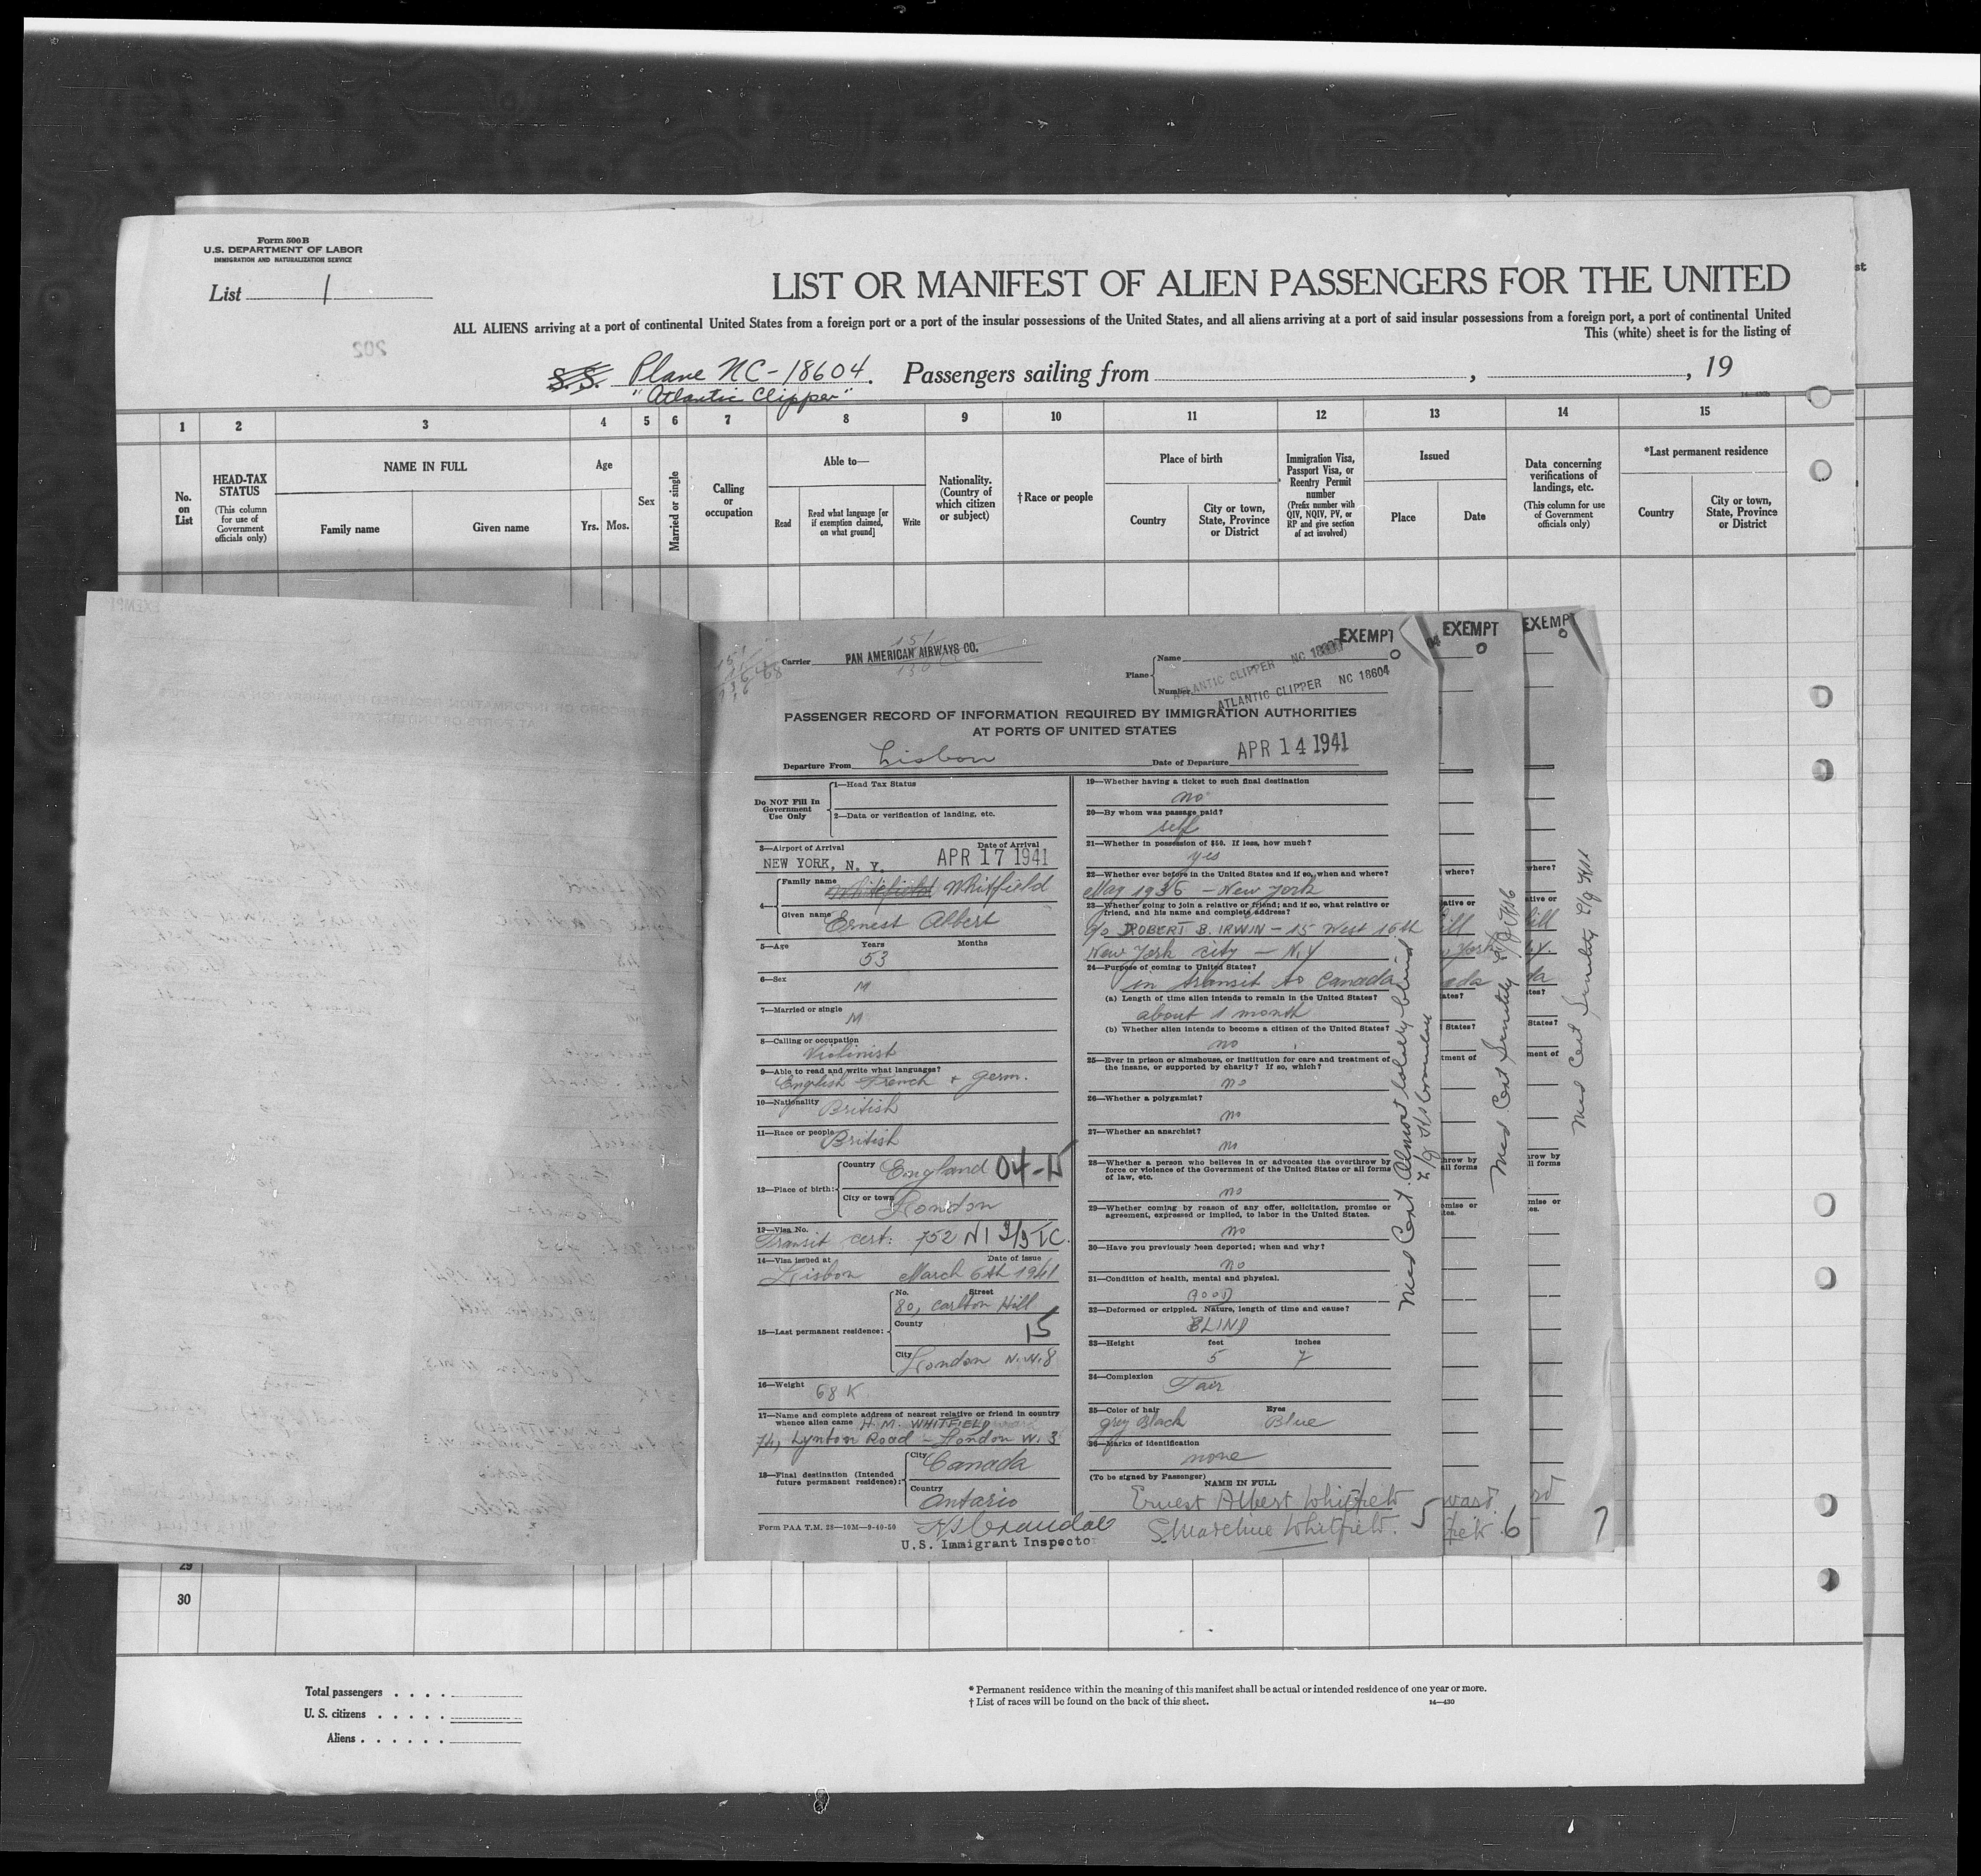 Form 500B
U.S. DEPARTMENT OF LABOR
IMMIGRATION AND NATURALIZATION SERVICE
List 1
LIST OR MANIFEST OF ALIEN PASSENGERS FOR THE UNITED
ALL ALIENS arriving at a port of continental United States from a foreign port or a port of the insular possessions of the United States, and all aliens arriving at a port of said insular possessions from a foreign port, a port of continental United
This (white) sheet is for the listing of
202
S.S. Plane NC-18604. Passengers sailing from , , 19
"Atlantic Clipper"
1 2 3 4 5 6 7 8 9 10 11 12 13 14 15
No. on List
HEAD-TAX STATUS
(This column for use of Government officials only)
NAME IN FULL
Family name Given name
Age
Yrs. Mos.
Sex
Married or single
Calling or occupation
Able to—
Read
Read what language [or if exemption claimed, on what ground]
Write
Nationality. (Country of which citizen or subject)
†Race or people
Place of birth
Country
City or town, State, Province or District
Immigration Visa, Passport Visa, or Reentry Permit number
(Prefix number with QIV, NQIV, PV, or RP and give section of act involved)
Issued
Place Date
Data concerning verifications of landings, etc.
(This column for use of Government officials only)
*Last permanent residence
Country
City or town, State, Province or District
EXEMPT
EXEMPT
EXEMPT
Carrier PAN AMERICAN AIRWAYS CO.
Plane
Name
Number
ATLANTIC CLIPPER NC 18604
PASSENGER RECORD OF INFORMATION REQUIRED BY IMMIGRATION AUTHORITIES
AT PORTS OF UNITED STATES
Departure From Lisbon Date of Departure APR 14 1941
Do NOT Fill In Government Use Only
1—Head Tax Status
2—Data or verification of landing, etc.
3—Airport of Arrival Date of Arrival
NEW YORK, N. Y. APR 17 1941
4—
Family name Whitefield Whitfield
Given name Ernest Albert
5—Age Years Months
53
6—Sex
M
7—Married or single
M
8—Calling or occupation
Violinist
9—Able to read and write what languages?
English French + Germ.
10—Nationality British
11—Race or people British
12—Place of birth:
Country England 04-
City or town London
13—Visa No.
Transit cert: 752 N I 3/3 TC.
14—Visa issued at Date of issue
Lisbon March 6th 1941
15—Last permanent residence:
No. Street
80, Carlton Hill
County
15
City London N.W.8
16—Weight 68 K
17—Name and complete address of nearest relative or friend in country
whence alien came H. M. WHITFIELD
74, Lynton Road - London W. 3
18—Final destination (Intended future permanent residence):
City Canada
Country
Ontario
Form PAA T.M. 28—10M—9-40-50
U.S. Immigrant Inspector
19—Whether having a ticket to such final destination
no
20—By whom was passage paid?
self
21—Whether in possession of $50. If less, how much?
yes
22—Whether ever before in the United States and if so, when and where?
May 1936 - New York
23—Whether going to join a relative or friend; and if so, what relative or
friend, and his name and complete address?
c/o ROBERT B. IRWIN - 15 West 16th
New York City - N.Y
24—Purpose of coming to United States?
in transit to Canada
(a) Length of time alien intends to remain in the United States?
about 1 month
(b) Whether alien intends to become a citizen of the United States?
no
25—Ever in prison or almshouse, or institution for care and treatment of
the insane, or supported by charity? If so, which?
no
26—Whether a polygamist?
no
27—Whether an anarchist?
no
28—Whether a person who believes in or advocates the overthrow by
force or violence of the Government of the United States or all forms
of law, etc.
no
29—Whether coming by reason of any offer, solicitation, promise or
agreement, expressed or implied, to labor in the United States.
no
30—Have you previously been deported; when and why?
no
31—Condition of health, mental and physical.
GOOD
32—Deformed or crippled. Nature, length of time and cause?
BLIND
33—Height feet inches
5 7
34—Complexion
Fair
35—Color of hair Eyes
grey Black Blue
36—Marks of identification
none
(To be signed by Passenger)
NAME IN FULL
Ernest Albert Whitfield
S. Madeline Whitfield. 5
6
7
Med Cert. Almost totally blind
Med Cert Senility
Med Cert Senility
29
30
Total passengers . . . .
U. S. citizens . . . . .
Aliens . . . . . .
* Permanent residence within the meaning of this manifest shall be actual or intended residence of one year or more.
† List of races will be found on the back of this sheet.
14—430